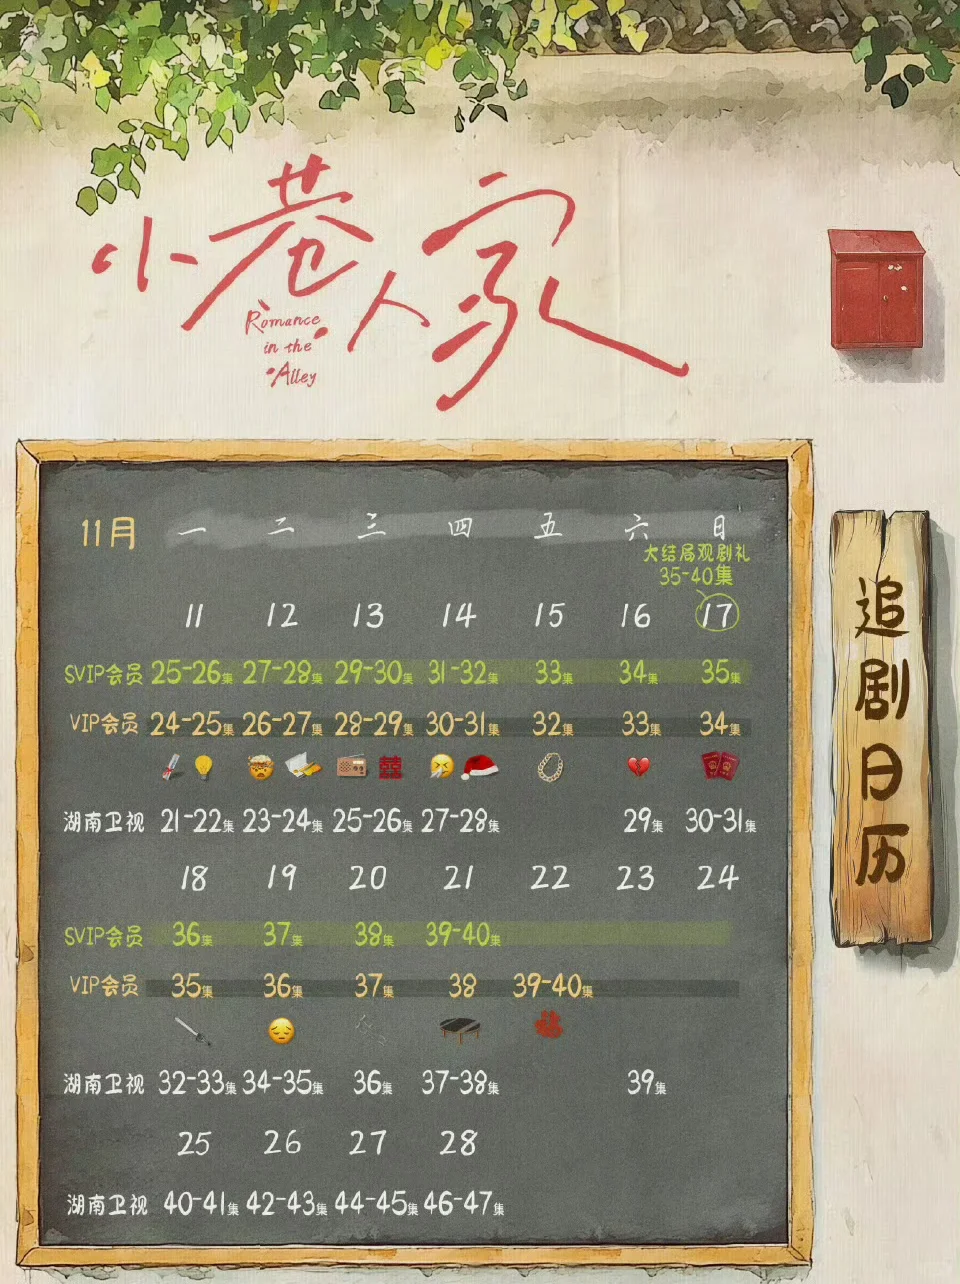 小巷人家
Romance
in the
Alley
11月 一 二 三 四 五 六 日
大结局观剧礼
35-40集
11 12 13 14 15 16 17
SVIP会员 25-26集 27-28集 29-30集 31-32集 33集 34集 35集
VIP会员 24-25集 26-27集 28-29集 30-31集 32集 33集 34集
囍
湖南卫视 21-22集 23-24集 25-26集 27-28集 29集 30-31集
18 19 20 21 22 23 24
SVIP会员 36集 37集 38集 39-40集
VIP会员 35集 36集 37集 38 39-40集
福
湖南卫视 32-33集 34-35集 36集 37-38集 39集
25 26 27 28
湖南卫视 40-41集 42-43集 44-45集 46-47集
追剧日历